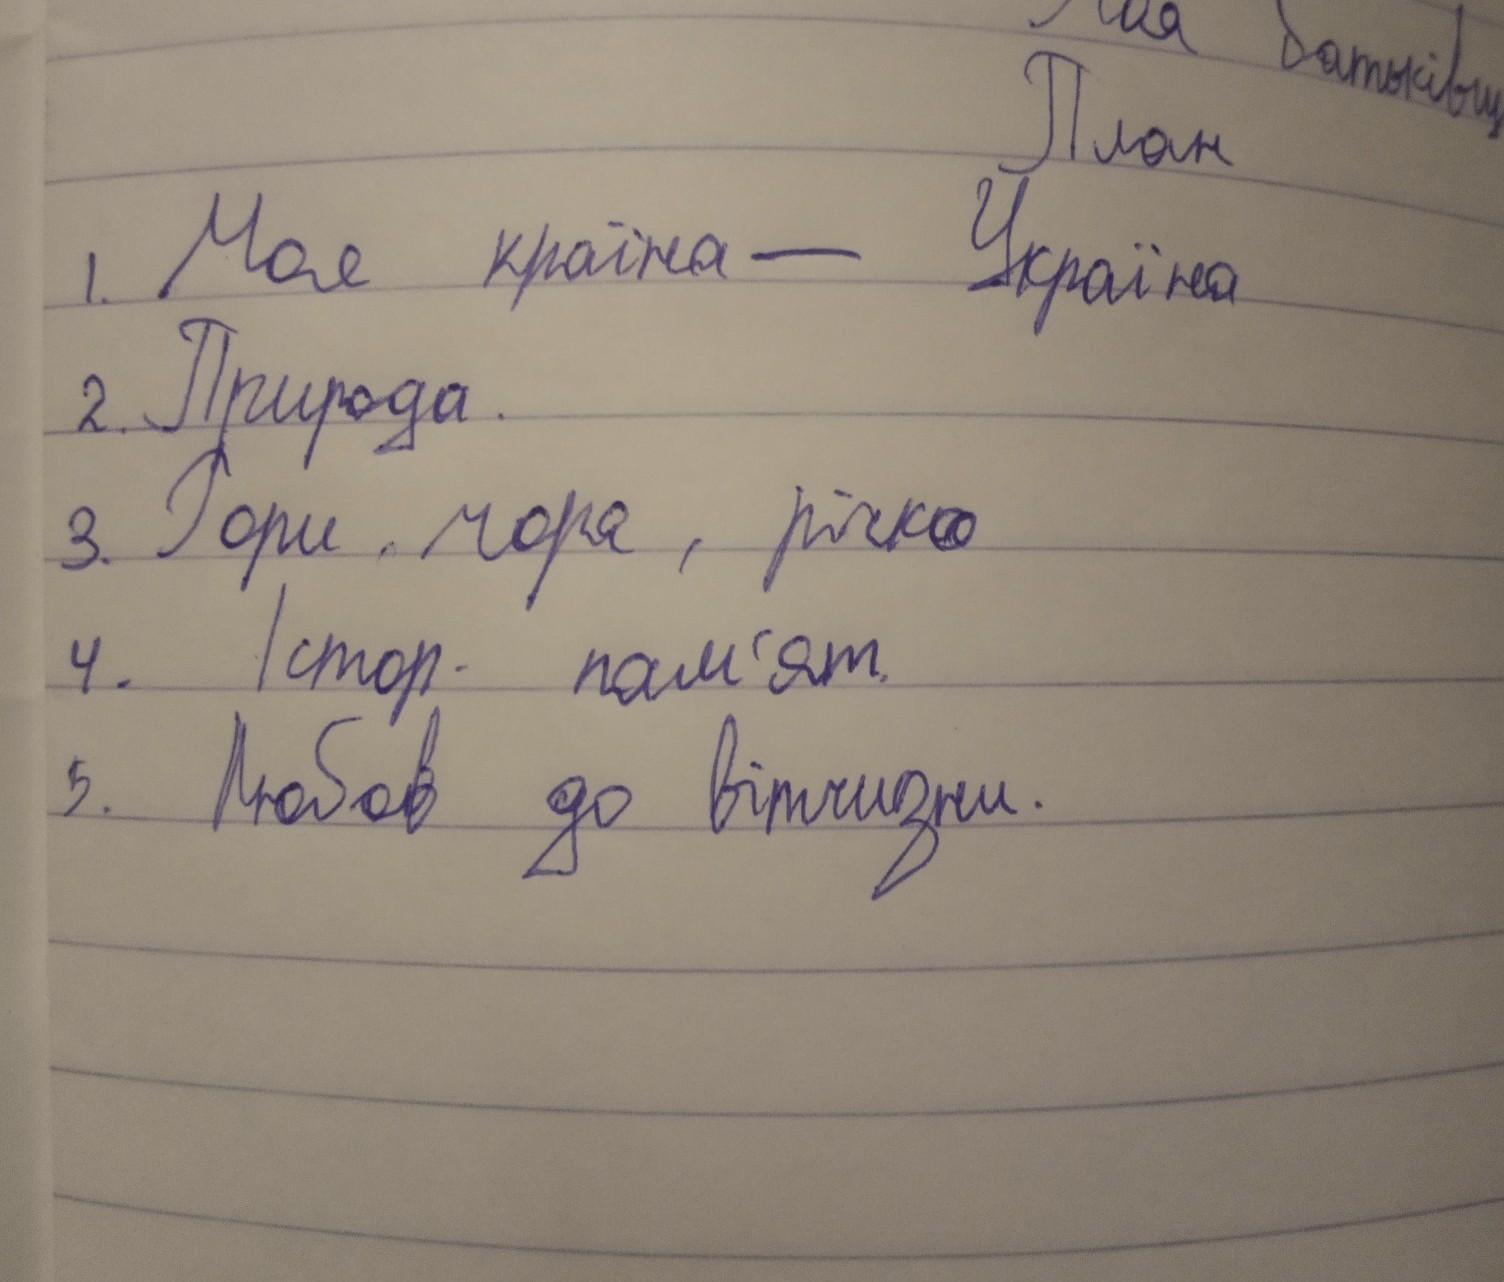 Моя Батьківщ
План
1. Моя країна — Україна
2. Природа.
3. Гори, моря, річка
4. Істор. пам'ят.
5. Любов до вітчизни.